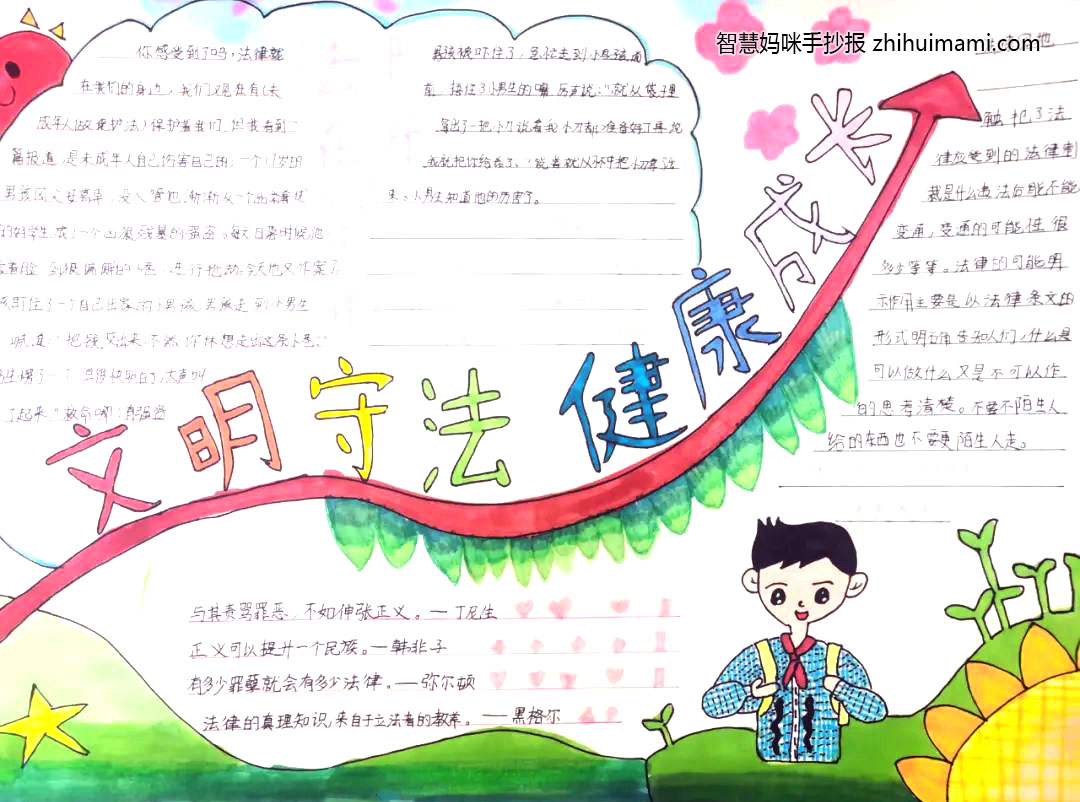 智慧妈咪手抄报 zhihuimami.com
你感受到了吗，法律就
在我们的身边，我们
成年人 保护着我们，但我看到
篇报道，是未成年人自己伤害自己的，一个17岁的
男孩因父母离异，没人管他，渐渐从一个
的好学生成了一个凶狠残暴的强盗。每天日暮时候他
到很偏僻的小巷，进行抢劫。今天他又作案了
住了一个自己出家的小男孩，男孩走到小男生
把钱交出来，不然，你休想走出这条小巷
生愣了一下，但很快明白了，大声叫
了起来，“救命啊！有强盗
男孩被吓住了，急忙走到小男孩面
前，捂住了小男生的嘴，厉声说：“就从袋子里
拿出了一把小刀说着我小刀都准备好了再
我就把你给 。”说着就从 中把小刀拿
来。小男生知道他的厉害了。
文明守法 健康成长
触犯了法
律应受到的法律制
裁是什么违法后能不能
变通，变通的可能性很
多少等等。法律的可能明
示作用主要是以法律条文的
形式明确告知人们，什么是
可以做什么又是不可以作
的思考清楚。不要不陌生人
给的东西也不要更陌生人走。
与其责骂罪恶，不如伸张正义。—丁尼生
正义可以提升一个民族。—韩非子
有多少罪孽就会有多少法律。—弥尔顿
法律的真理知识，来自于立法者的教养。——黑格尔